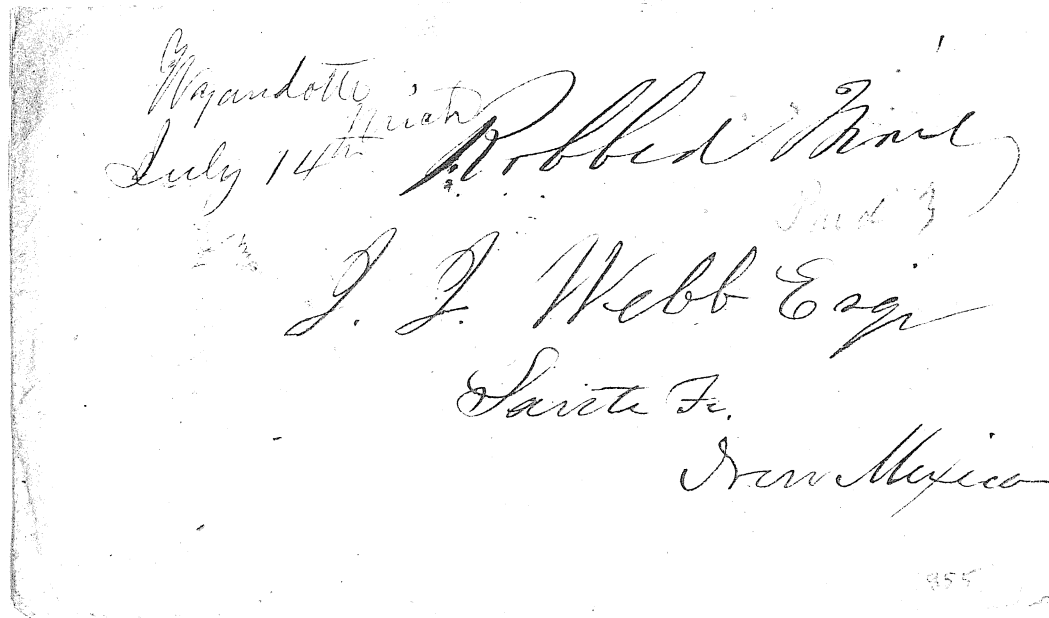 Wyandotte
Mich
July 14th
Robbed
Paid 3
J. J. Webb Esqr
Santa Fe.
New Mexico
855